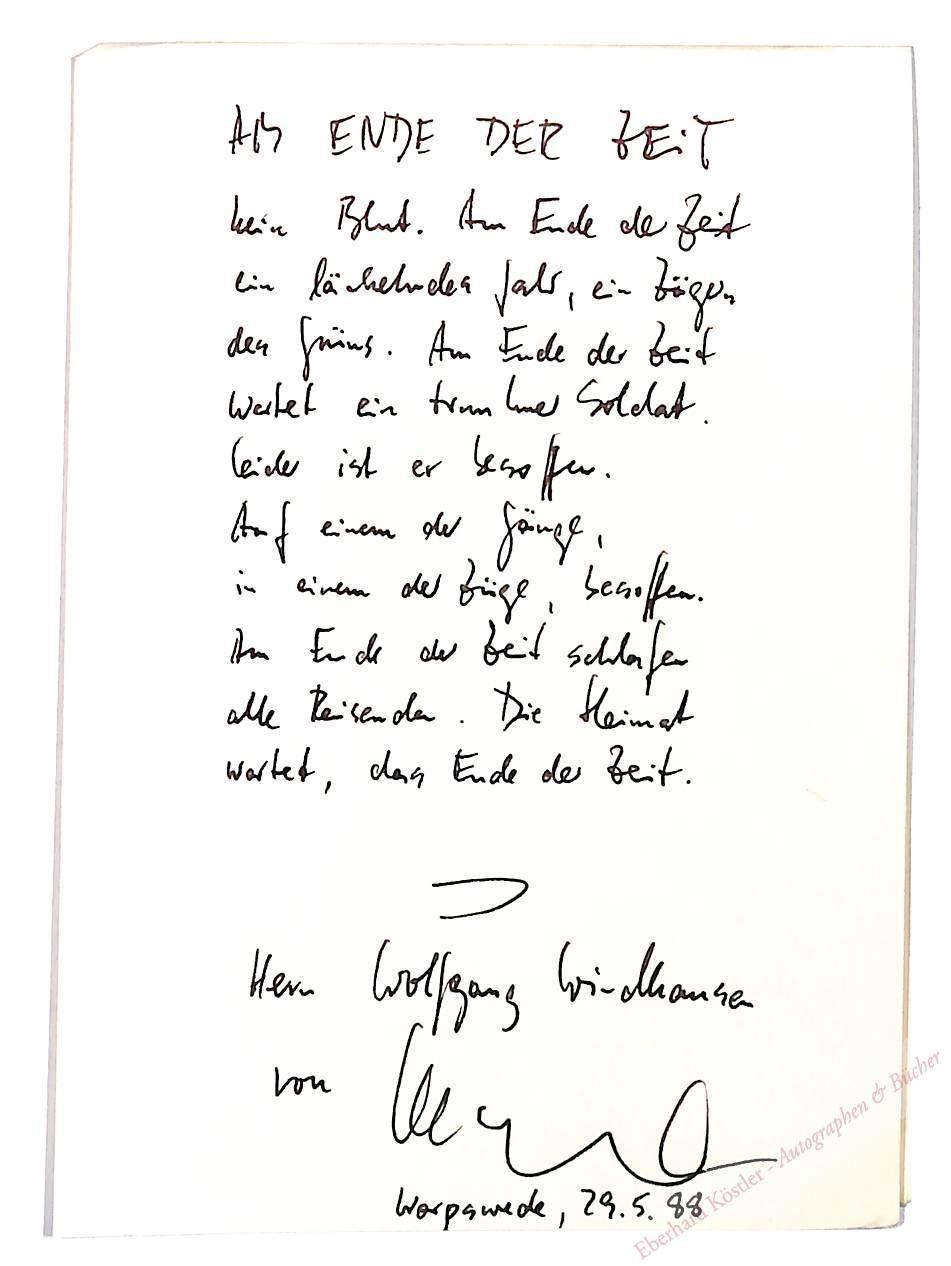 AM ENDE DER ZEIT
kein Blut. Am Ende der Zeit
ein lächelndes Jahr, ein Zögern
des Grüns. Am Ende der Zeit
wartet ein trunkner Soldat.
Leider ist er besoffen.
Auf einem der Gänge,
in einem der Züge, besoffen.
Am Ende der Zeit schlafen
alle Reisenden. Die Heimat
wartet, das Ende der Zeit.
Herrn Wolfgang Windhausen
von
Worpswede, 29.5.88
Eberhard Köstler - Autographen & Bücher